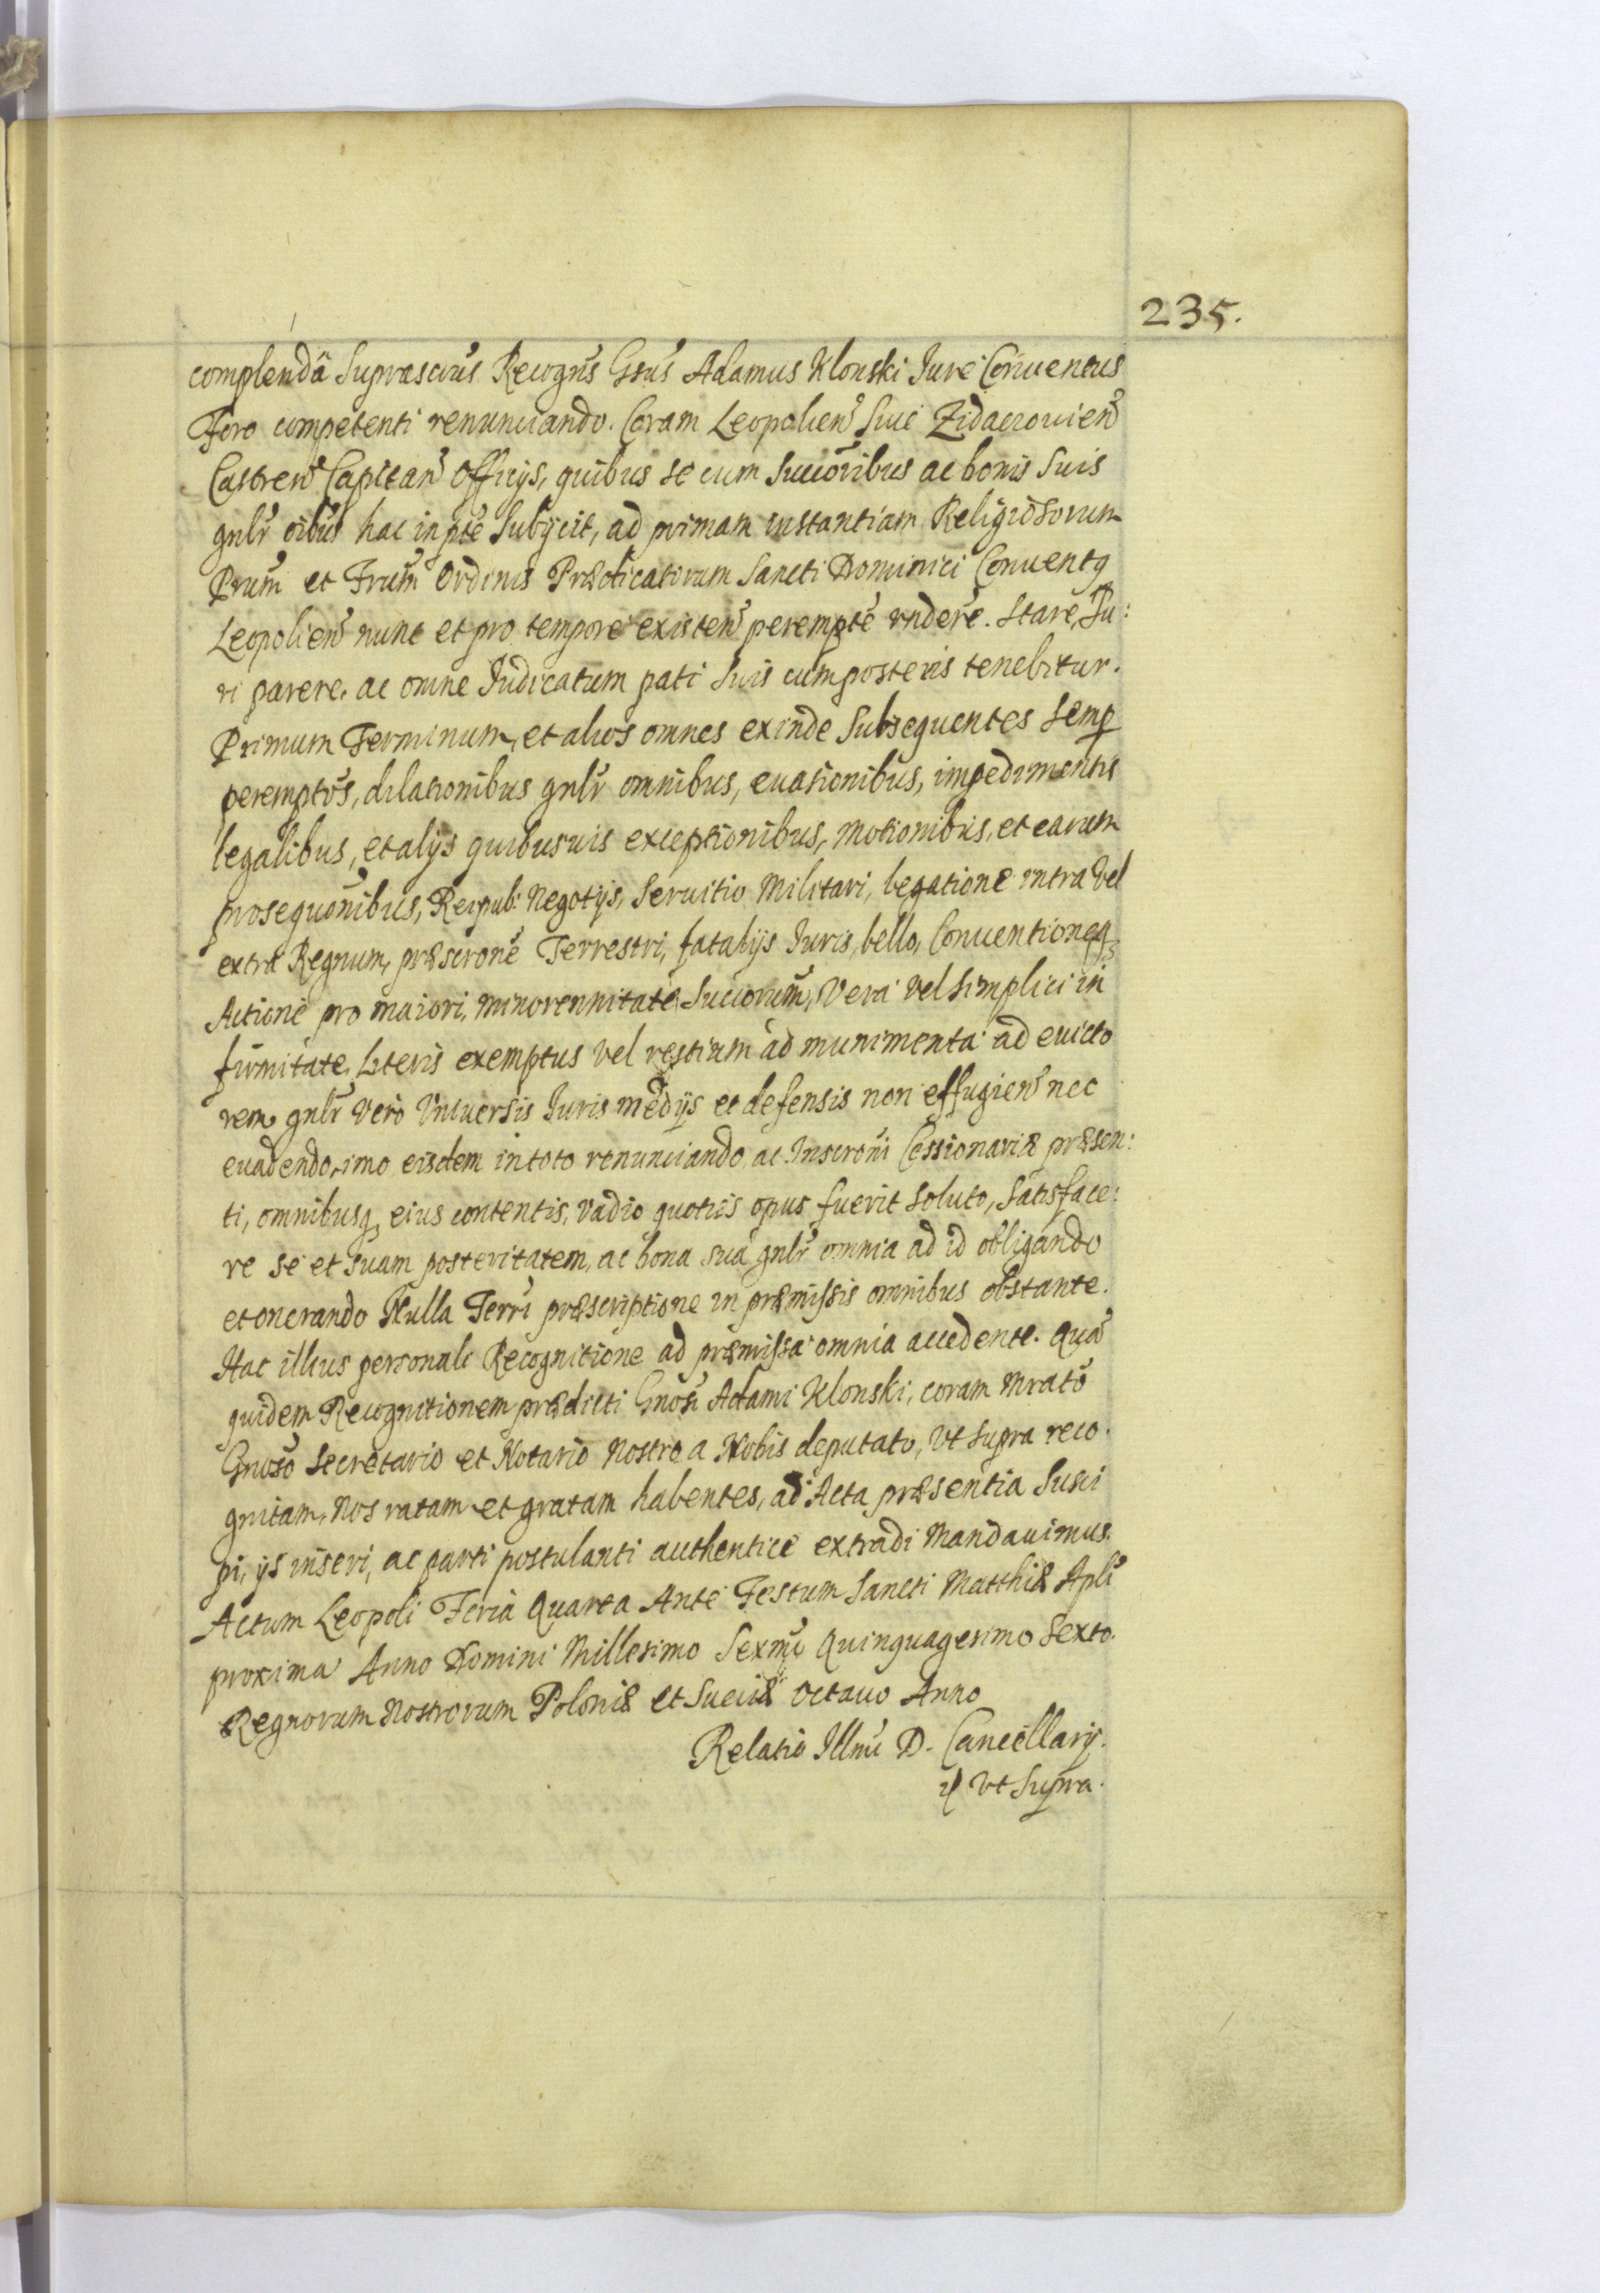 235.
complendâ Suprascrus Recogns Gsus Adamus Klonski Iure Conuentus
Foro competenti renunciando. Coram Leopolien Siue Zidaczouien
Castren Capitan Officijs, quibus se cum Succoribus ac bonis Suis
gnlr oibus hac in pte Subijcit, ad primam instantiam Religiosorum
Prum et Frum Ordinis Prædicatorum Sancti Dominici Conuentq
Leopolien nunc et pro tempore existen perempte rndere. Stare, Ju:
ri parere, ac omne Judicatum pati Suis cum posteris tenebitur.
Primum Terminum, et alios omnes exinde Subsequentes Semp
peremptos, dilationibus gnlr omnibus, euasionibus, impedimentis
legalibus, et alijs quibusuis exceptionibus, Motionibus, et earum
prosequonibus, Reipub: Negotijs, Seruitio Militari, legatione intra vel
extra Regnum, præscrone Terrestri, fatalijs Iuris, bello, Conuentioneq
Actione pro maiori, minorennitate Succorum, Vera vel Simplici in
firmitate, Literis exemptus vel restium ad munimenta ad euicto
rem gnlr vero Vniuersis Iuris medijs et defensis non effugien nec
euadendo, imo eisdem in toto renunciando, ac Inscroni Cessionariæ præsen:
ti, omnibusq eius contentis, vadio quotiis opus fuerit soluto, Satisface:
re se et suam posteritatem, ac bona sua gnlr omnia ad id obligando
et onerando Nulla Terri præscriptione in præmissis omnibus obstante.
Hac illius personali Recognitione ad præmissa omnia accedente. Qua
quidem Recognitionem prædicti Gnosi Adami Klonski, coram Mrato
Gnoso Secretario et Notario Nostro a Nobis deputato, Vt supra reco
gnitam, Nos ratam et gratam habentes, ad Acta præsentia Susci
pi, ijs inseri, ac parti postulanti authentice extradi Mandauimus.
Actum Leopoli Feria Quarta Ante Festum Sancti Matthiæ Apli
proxima Anno Domini Millesimo Sexmo Quinquagesimo Sexto.
Regnorum Nostrorum Poloniæ et Sueciæ Octauo Anno
Relatio Illmi D. Cancellarij.
Vt Supra.